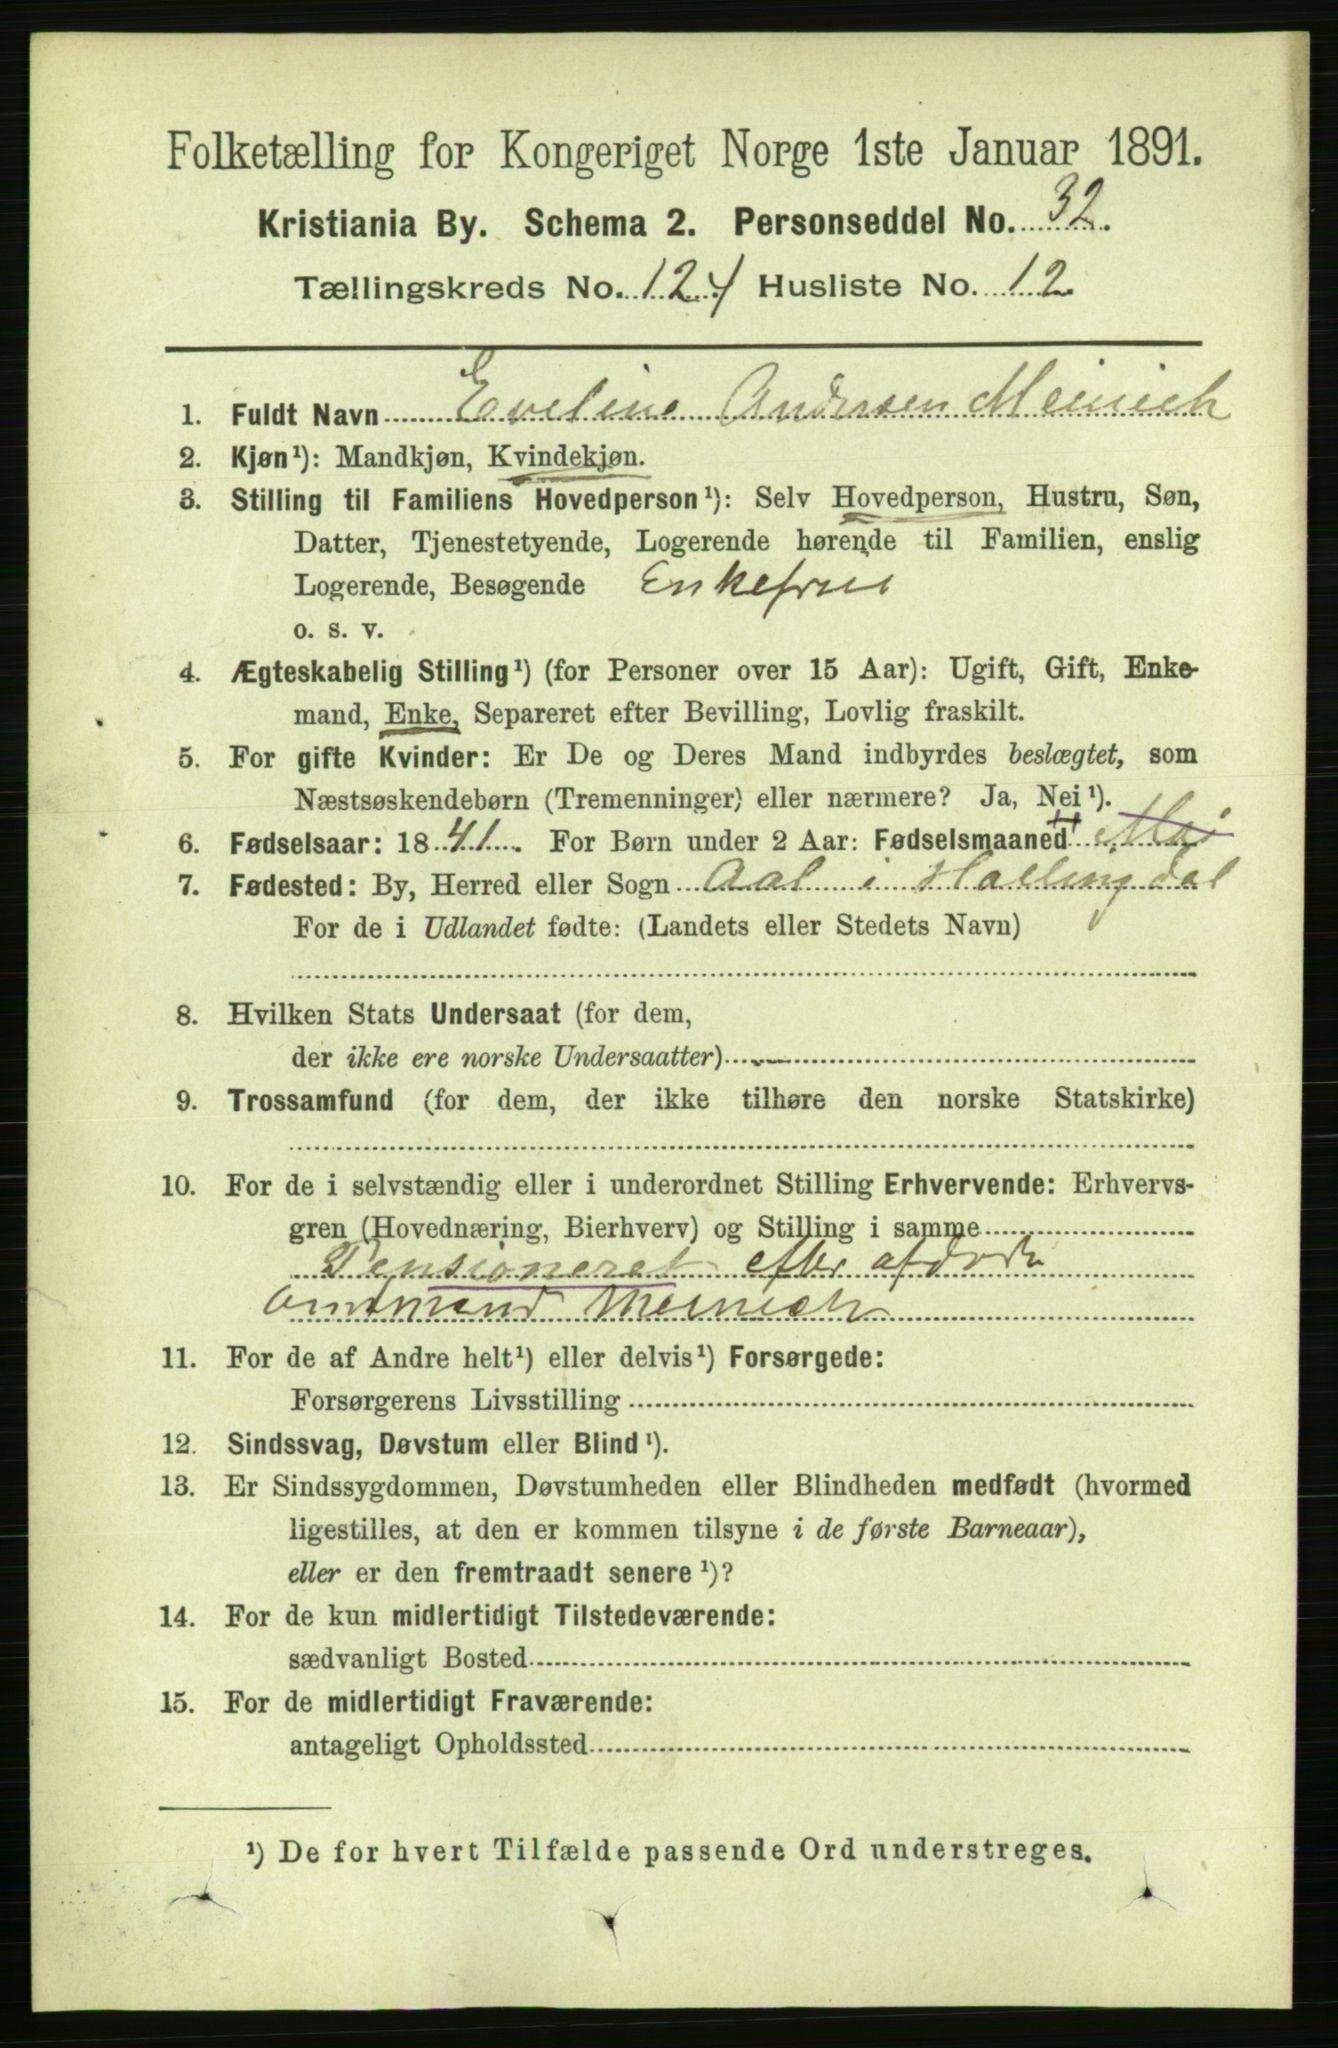 Folketælling for Kongeriget Norge 1ste Januar 1891.
Kristiania By. Schema 2. Personseddel No. 32.
Tællingskreds No. 124 Husliste No. 12
1. Fuldt Navn Eveline Andersen Meinich
2. Kjøn¹): Mandkjøn, Kvindekjøn.
3. Stilling til Familiens Hovedperson¹): Selv Hovedperson, Hustru, Søn,
Datter, Tjenestetyende, Logerende hørende til Familien, enslig
Logerende, Besøgende Enkefrue
o. s. v.
4. Ægteskabelig Stilling¹) (for Personer over 15 Aar): Ugift, Gift, Enke-
mand, Enke, Separeret efter Bevilling, Lovlig fraskilt.
5. For gifte Kvinder: Er De og Deres Mand indbyrdes beslægtet, som
Næstsøskendebørn (Tremenninger) eller nærmere? Ja, Nei¹).
6. Fødselsaar: 1841. For Børn under 2 Aar: Fødselsmaaned Mai
7. Fødested: By, Herred eller Sogn Aal i Hallingdal
For de i Udlandet fødte: (Landets eller Stedets Navn)
8. Hvilken Stats Undersaat (for dem,
der ikke ere norske Undersaatter)
9. Trossamfund (for dem, der ikke tilhøre den norske Statskirke)
10. For de i selvstændig eller i underordnet Stilling Erhvervende: Erhvervs-
gren (Hovednæring, Bierhverv) og Stilling i samme
Pensioneret efter afdøde
Amtmand Meinich
11. For de af Andre helt¹) eller delvis¹) Forsørgede:
Forsørgerens Livsstilling
12. Sindssvag, Døvstum eller Blind¹).
13. Er Sindssygdommen, Døvstumheden eller Blindheden medfødt (hvormed
ligestilles, at den er kommen tilsyne i de første Barneaar),
eller er den fremtraadt senere¹)?
14. For de kun midlertidigt Tilstedeværende:
sædvanligt Bosted
15. For de midlertidigt Fraværende:
antageligt Opholdssted
¹) De for hvert Tilfælde passende Ord understreges.